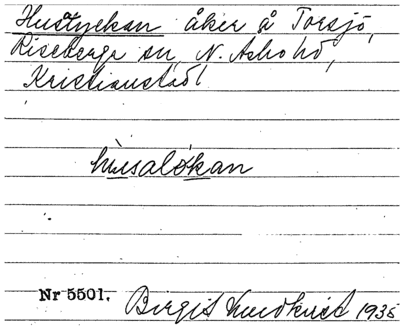 Hustyckan åker å Torsjö,
Riseberga sn N. Åsbo hd,
Kristianstads l
husalókan
Nr 5501. Birgit Lundkvist 1935